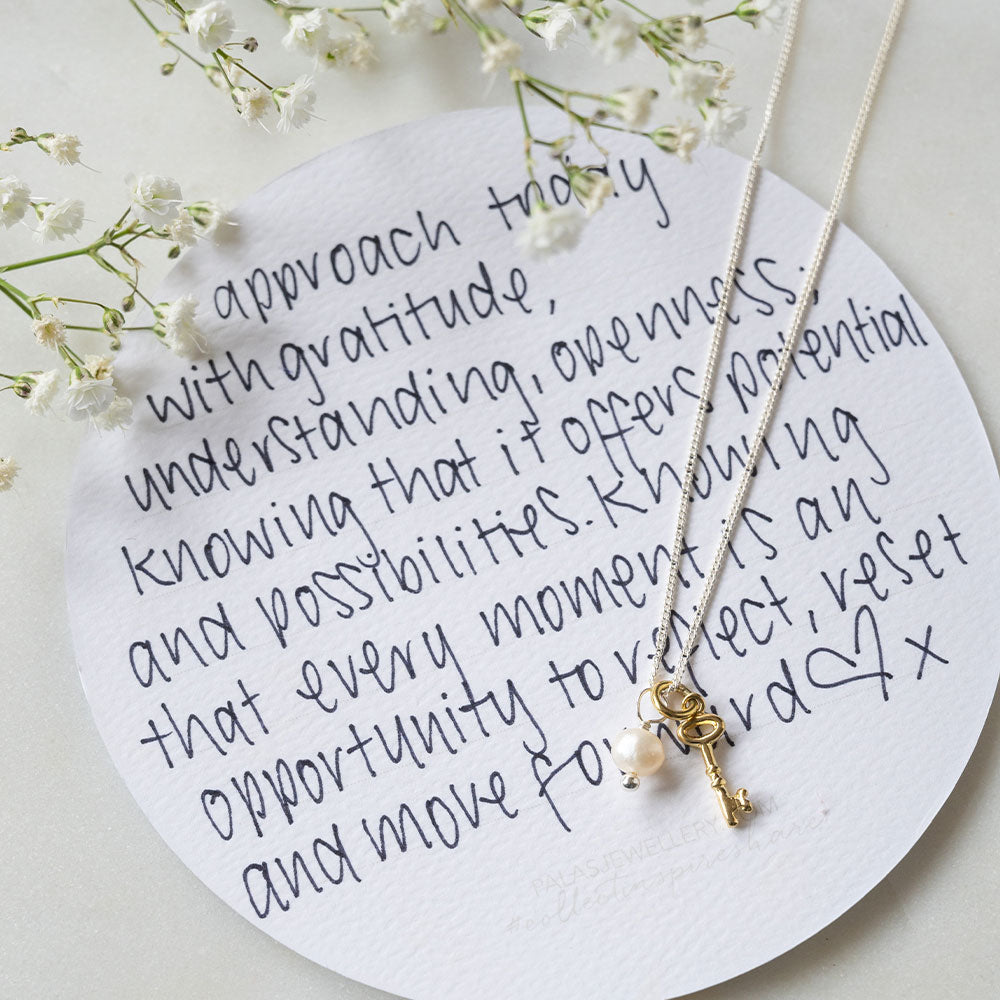 approach today
with gratitude,
understanding, openness;
knowing that it offers potential
and possibilities. Knowing
that every moment is an
opportunity to reflect, reset
and move forward ♡ x
PALASJEWELLERY.COM
#collectinspireshare